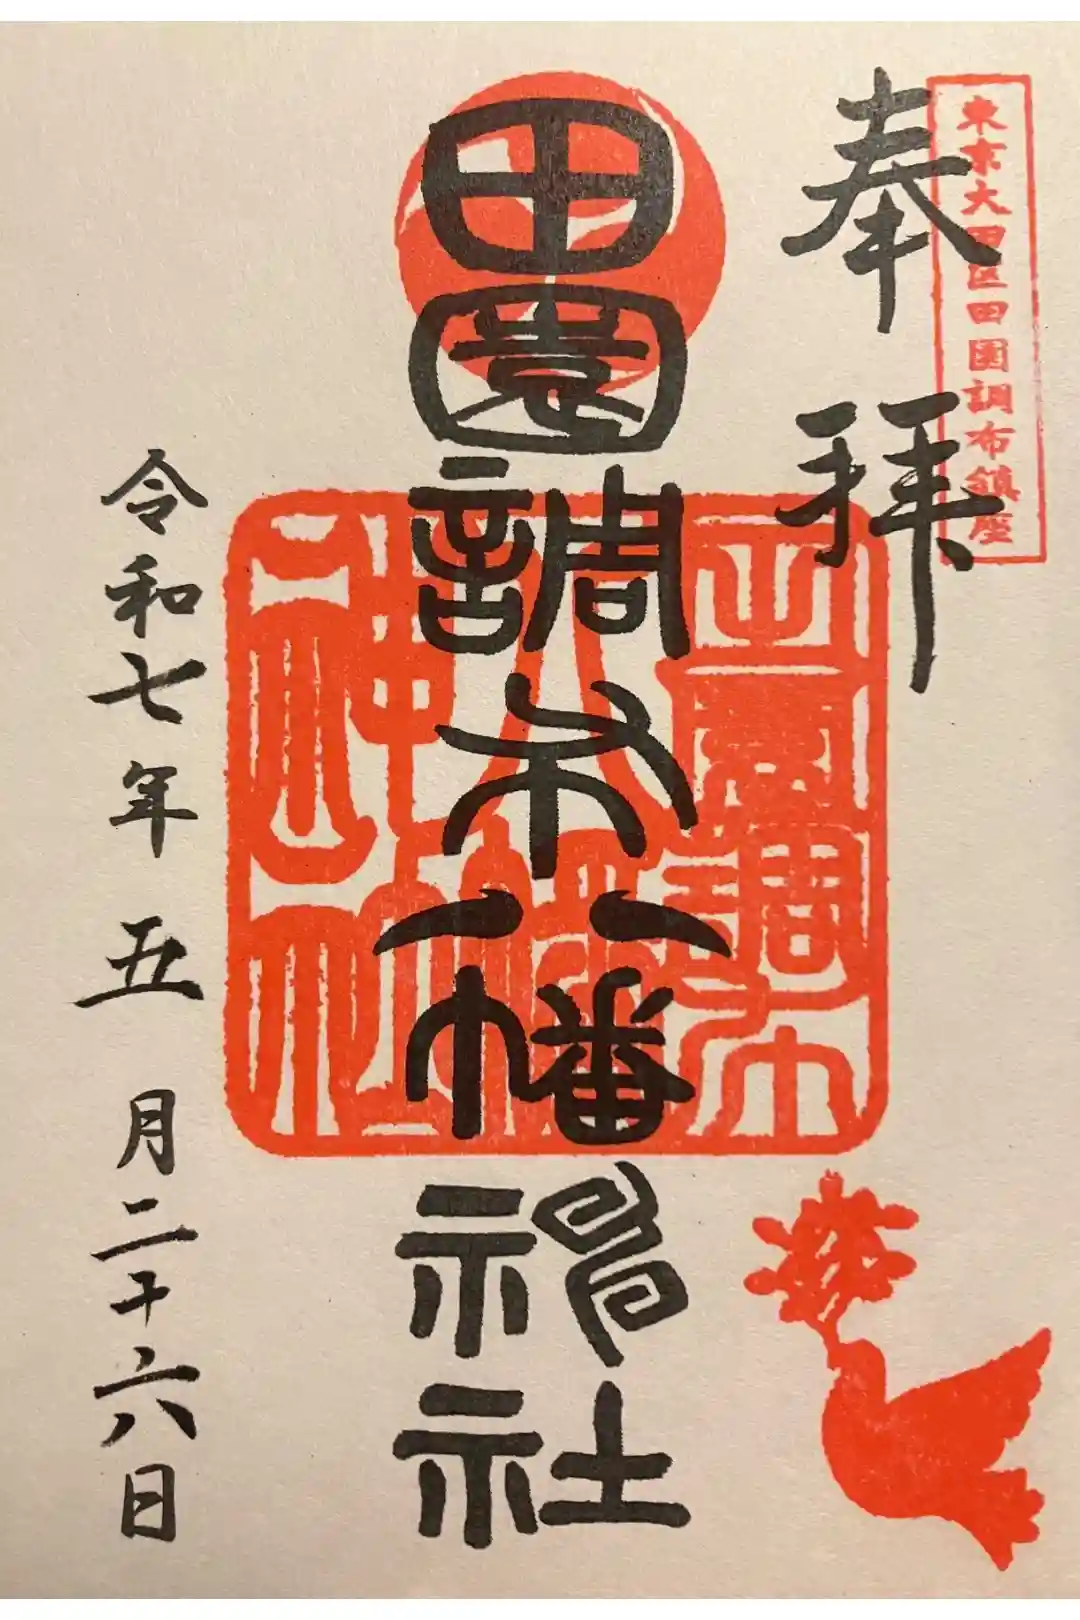 東京大田区田園調布鎮座
奉拝
田園調布八幡神社
令和七年五月二十六日